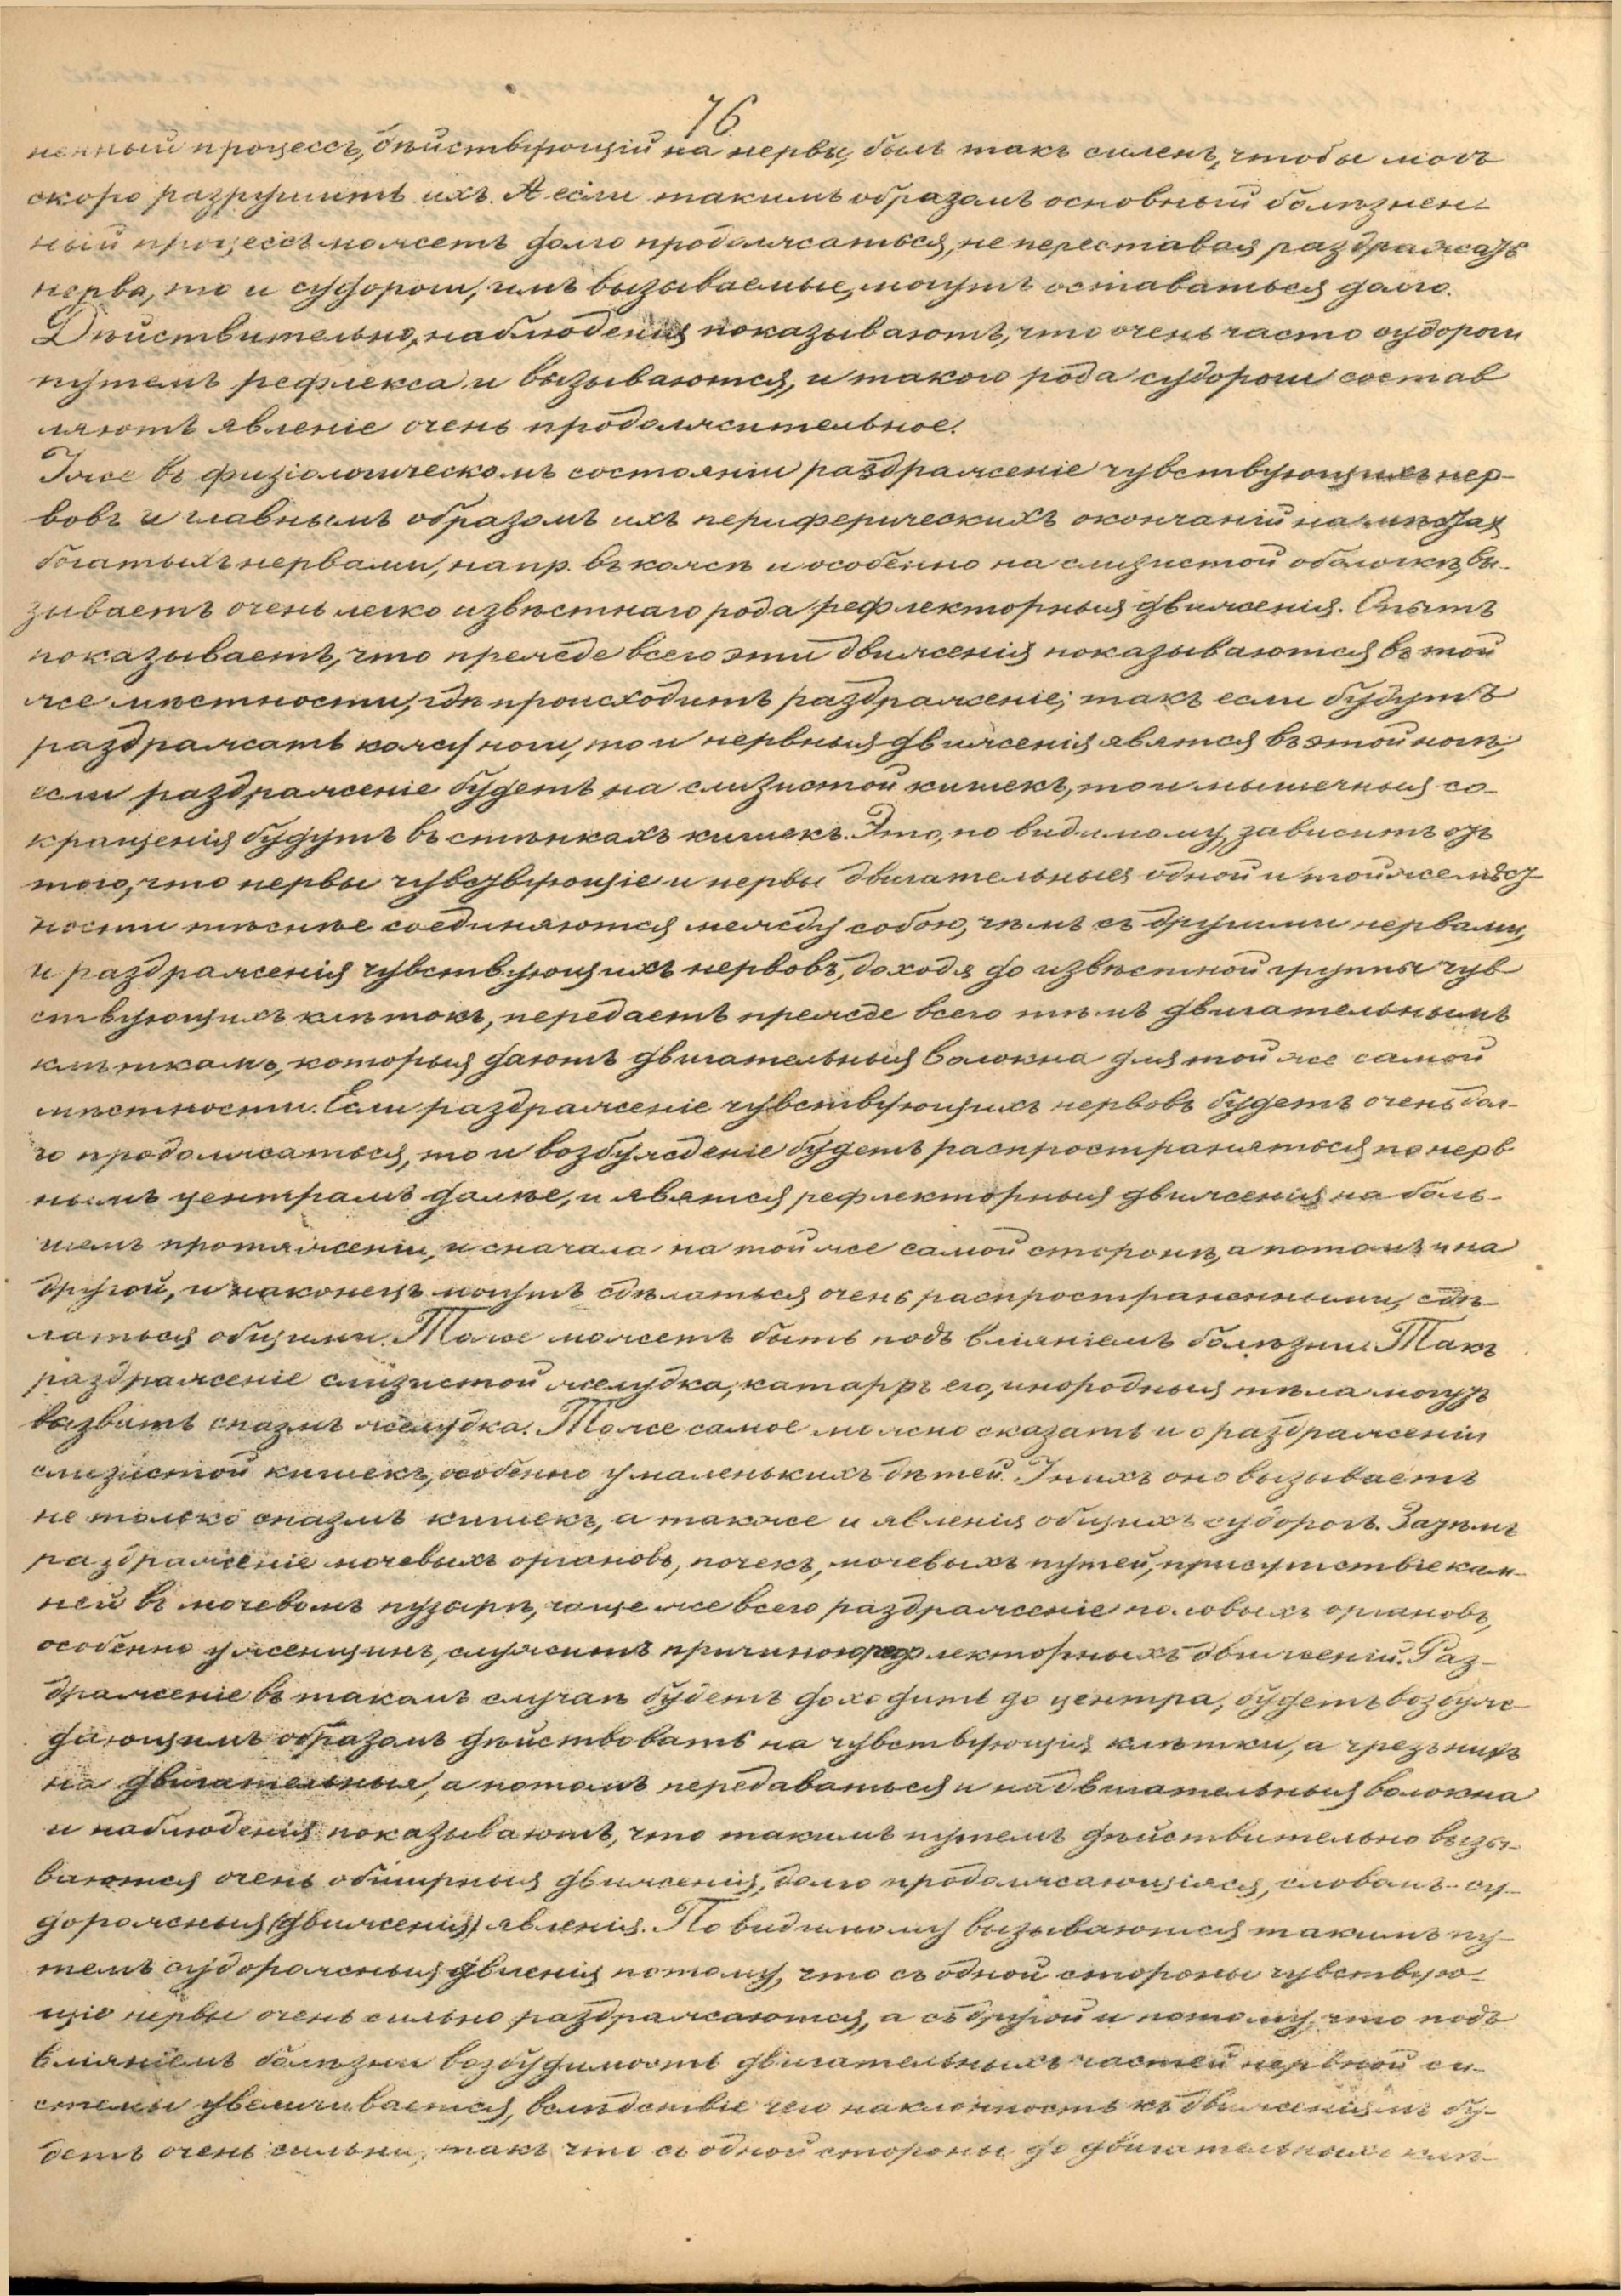 76
ненный процессъ, дѣйствующій на нервы, былъ такъ силенъ, чтобы могъ
скоро разрушить ихъ. А если такимъ образомъ основный болѣзнен-
ный процессъ можетъ долго продолжаться, не переставая раздражать
нерва, то и судороги, имъ вызываемые, могутъ оставаться долго.
Дѣйствительно, наблюденія показываютъ, что очень часто судороги
путемъ рефлекса и вызываются, и такого рода судороги состав
ляютъ явленіе очень продолжительное.
Уже въ физіологическомъ состояніи раздраженіе чувствующихъ нер-
вовъ и главнымъ образомъ ихъ периферическихъ окончаній на мѣстахъ
богатыхъ нервами, напр. въ кожѣ и особенно на слизистой оболочкѣ, вы-
зываетъ очень легко извѣстнаго рода рефлекторныя движенія. Опытъ
показываетъ, что прежде всего эти движенія показываются въ той
же мѣстности, гдѣ происходитъ раздраженіе; такъ если будутъ
раздражать кожу ноги, то и нервныя движенія явятся въ этой ногѣ;
если раздраженіе будетъ на слизистой кишекъ, то и мышечныя со-
кращенія будутъ въ стѣнкахъ кишекъ. Это, по видимому, зависитъ отъ
того, что нервы чувствующіе и нервы двигательные одной и той же мѣст-
ности тѣснѣе соединяются между собою, чѣмъ съ другими нервами,
и раздраженія чувствующихъ нервовъ, доходя до извѣстной группы чув
ствующихъ клѣтокъ, передаетъ прежде всего тѣмъ двигательнымъ
клѣткамъ, которыя даютъ двигательныя волокна для той же самой
мѣстности. Если раздраженіе чувствующихъ нервовъ будетъ очень дол-
го продолжаться, то и возбужденіе будетъ распространяться по нерв
нымъ центрамъ далѣе, и явятся рефлекторныя движенія на боль-
шемъ протяженіи, и сначала на той же самой сторонѣ, а потомъ и на
другой, и наконецъ могутъ сдѣлаться очень распространенными, сдѣ-
латься общими. Тоже можетъ быть подъ вліяніемъ болѣзни. Такъ
раздраженіе слизистой желудка, катарръ его, инородныя тѣла могутъ
вызвать спазмъ желудка. Тоже самое можно сказать и о раздраженіи
слизистой кишекъ, особенно у маленькихъ дѣтей. У нихъ оно вызываетъ
не только спазмъ кишекъ, а также и явленія общихъ судорогъ. Затѣмъ
раздраженіе мочевыхъ органовъ, почекъ, мочевыхъ путей, присутствіе кам-
ней въ мочевомъ пузырѣ, чаще же всего раздраженіе половыхъ органовъ,
особенно у женщинъ, служитъ причиною рефлекторныхъ движеній. Раз-
драженіе въ такомъ случаѣ будетъ доходить до центра, будетъ возбуж-
дающимъ образомъ дѣйствовать на чувствующія клѣтки, а чрезъ нихъ
на двигательныя, а потомъ передаваться и на двигательныя волокна
и наблюденія показываютъ, что такимъ путемъ дѣйствительно вызы-
ваются очень обширныя движенія, долго продолжающіяся, словомъ - су-
дорожныя (движенія) явленія. По видимому вызываются такимъ пу-
темъ судорожныя явленія потому, что съ одной стороны чувствую-
щіе нервы очень сильно раздражаются, а съ другой и потому, что подъ
вліяніемъ болѣзни возбудимость двигательныхъ частей нервной си-
стемы увеличивается, вслѣдствіе чего наклонность къ движеніямъ бу-
детъ очень сильна, такъ что съ одной стороны до двигательныхъ клѣ-